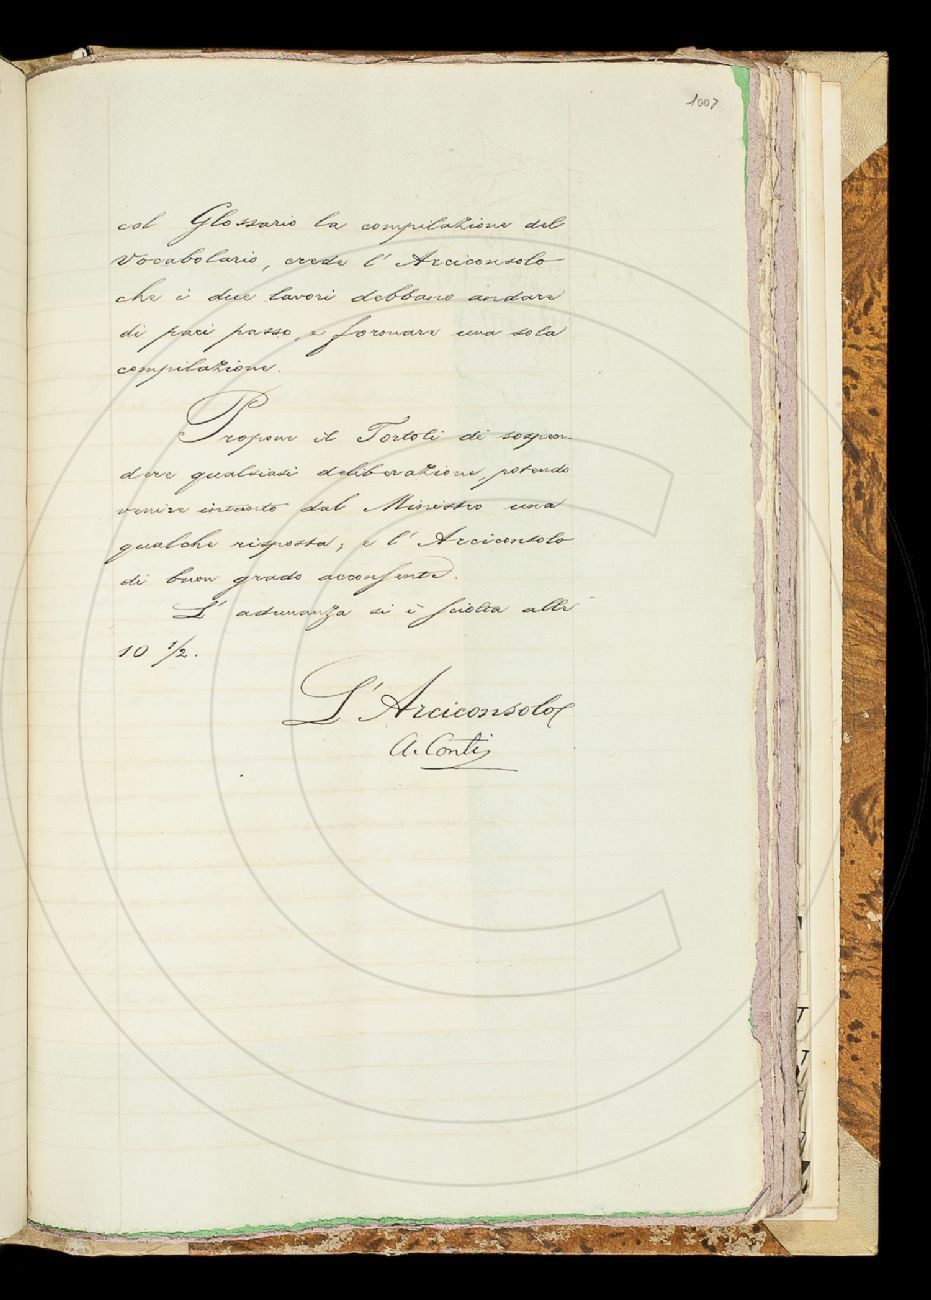 1007
col Glossario la compilazione del
Vocabolario, crede l'Arciconsolo
che i due lavori debbano andare
di pari passo, e formare una sola
compilazione.
Propone il Tortoli di sospen-
dere qualsiasi deliberazione, potendo
venire intanto dal Ministro una
qualche risposta; e l'Arciconsolo
di buon grado acconsente.
L'adunanza si è sciolta alle
10 1/2.
L'Arciconsolo
A. Conti